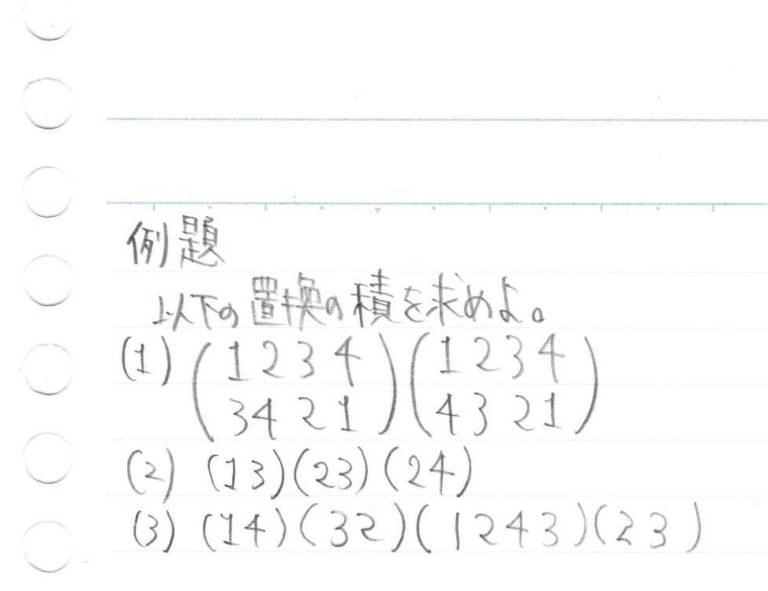 例題
以下の置換の積を求めよ。
(1) (1 2 3 4)(1 2 3 4)
(3 4 2 1)(4 3 2 1)
(2) (13)(23)(24)
(3) (14)(32)(1243)(23)